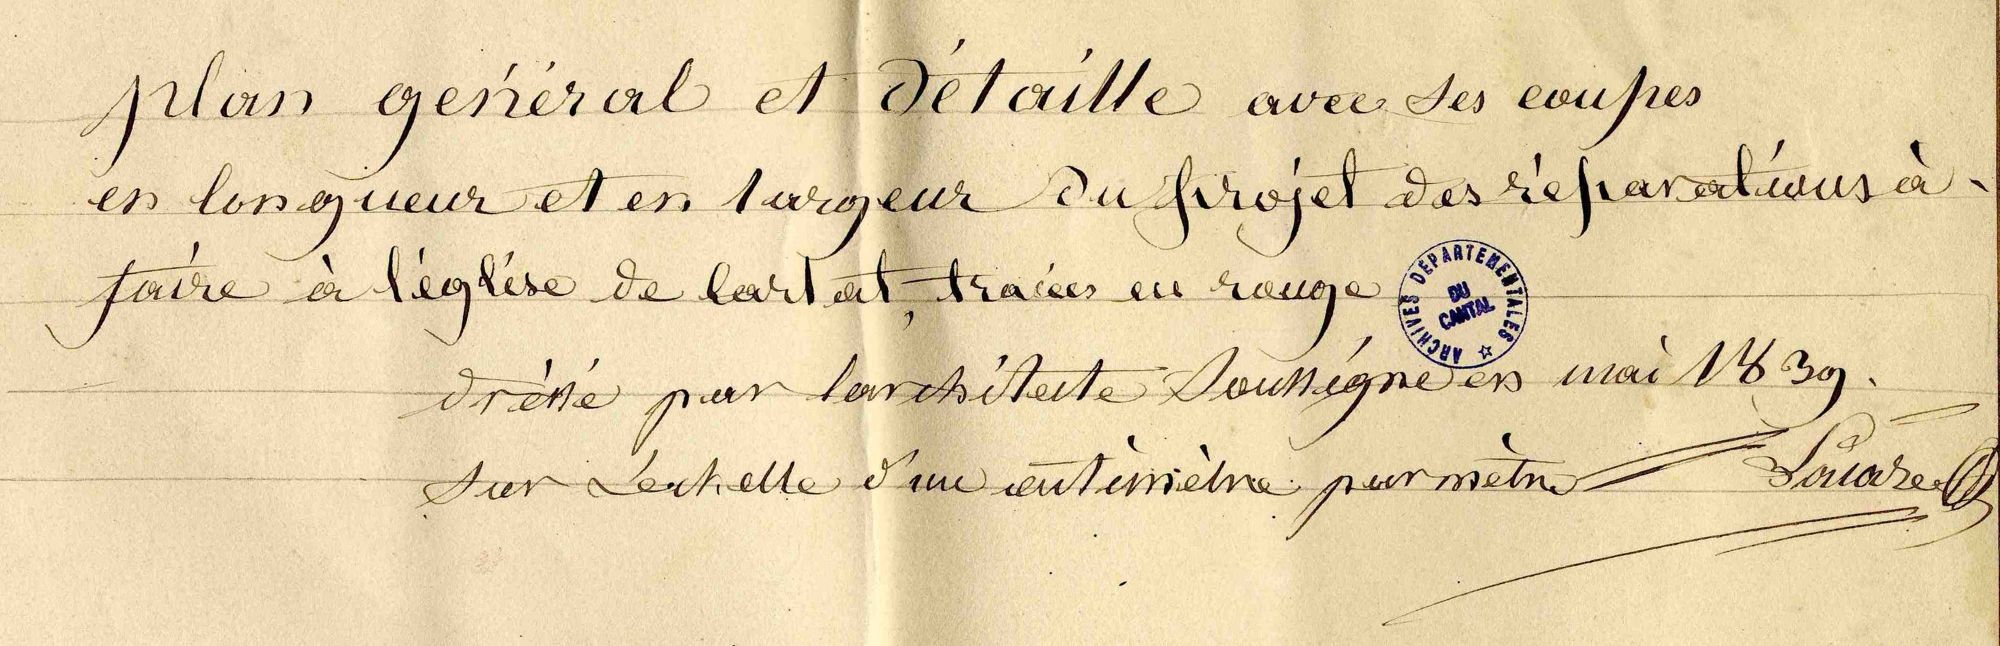 plan général et détaille avec ses coupes
en longueur et en largeur du projet des réparations à
faire à l'église de Carlat, tracées en rouge
ARCHIVES DÉPARTEMENTALES
DU
CANTAL
dréssé par larchitecte Soussigné en mai 1839.
sur L'échelle d'un centimètre par mètre